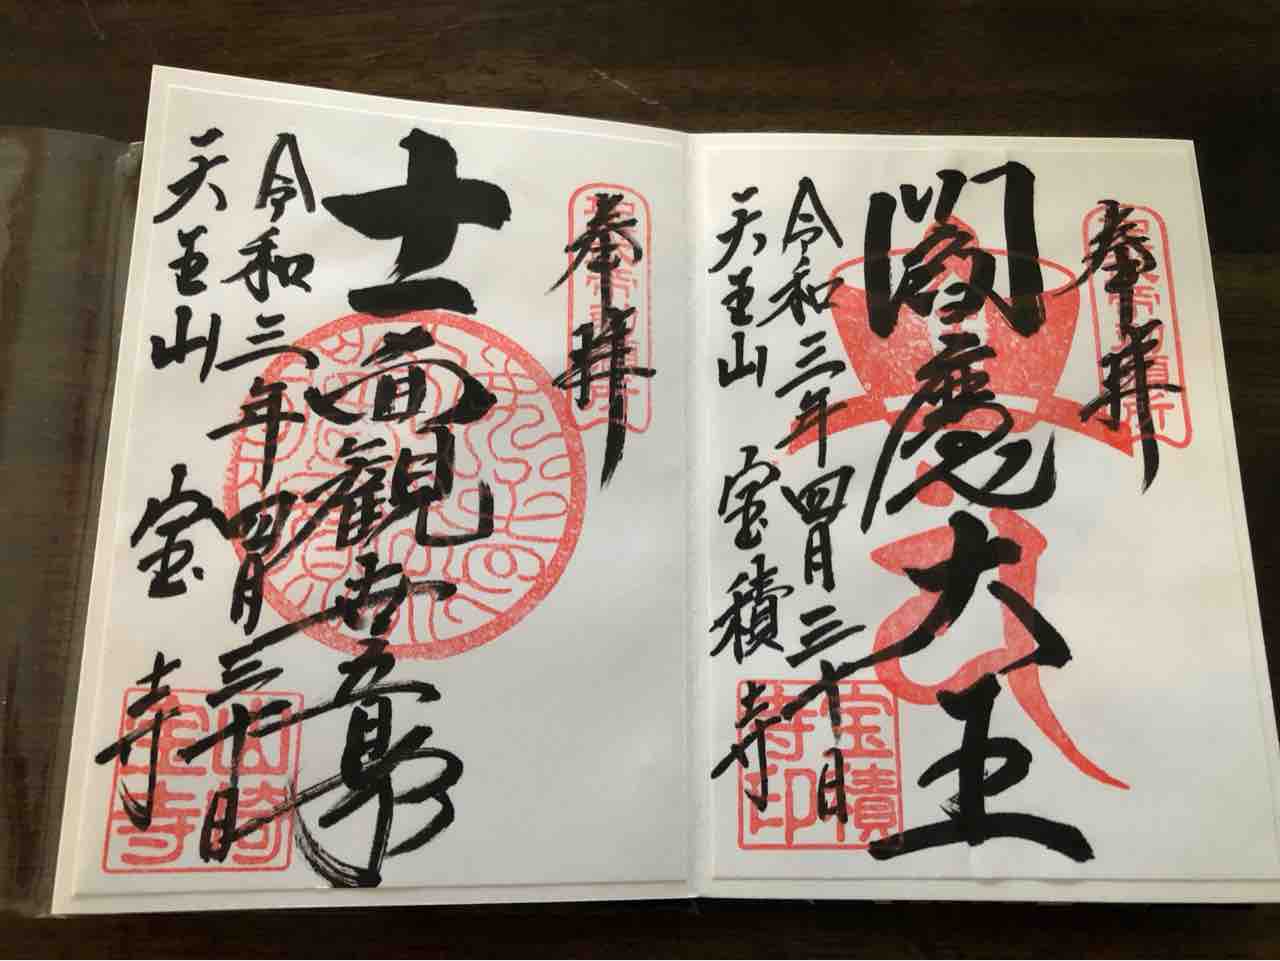 奉拝
閻魔大王
令和三年四月三十日
天王山 宝積寺
宝積寺印
奉拝
十一面観
令和三年四月三十日
天王山 宝寺
山崎宝寺